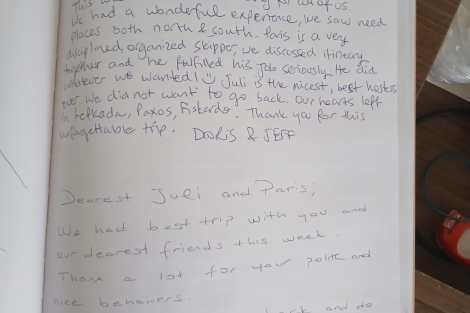 This
We had a wonderful experience, we saw need
places both north & south. Paris is a very
disciplined, organized skipper, we discussed itinery
together and he fulfilled his job seriously. He did
whatever we wanted! Juli is the nicest, best hostes
ever. We did not want to go back. Our hearts left
in Lefkada, Paxos, Fiskardo. Thank you for this
unforgettable trip. DORIS & JEFF
Dearest Juli and Paris,
We had best trip with you and
our dearest friends this week.
Thank a lot for your polite and
nice behaviers.
and do